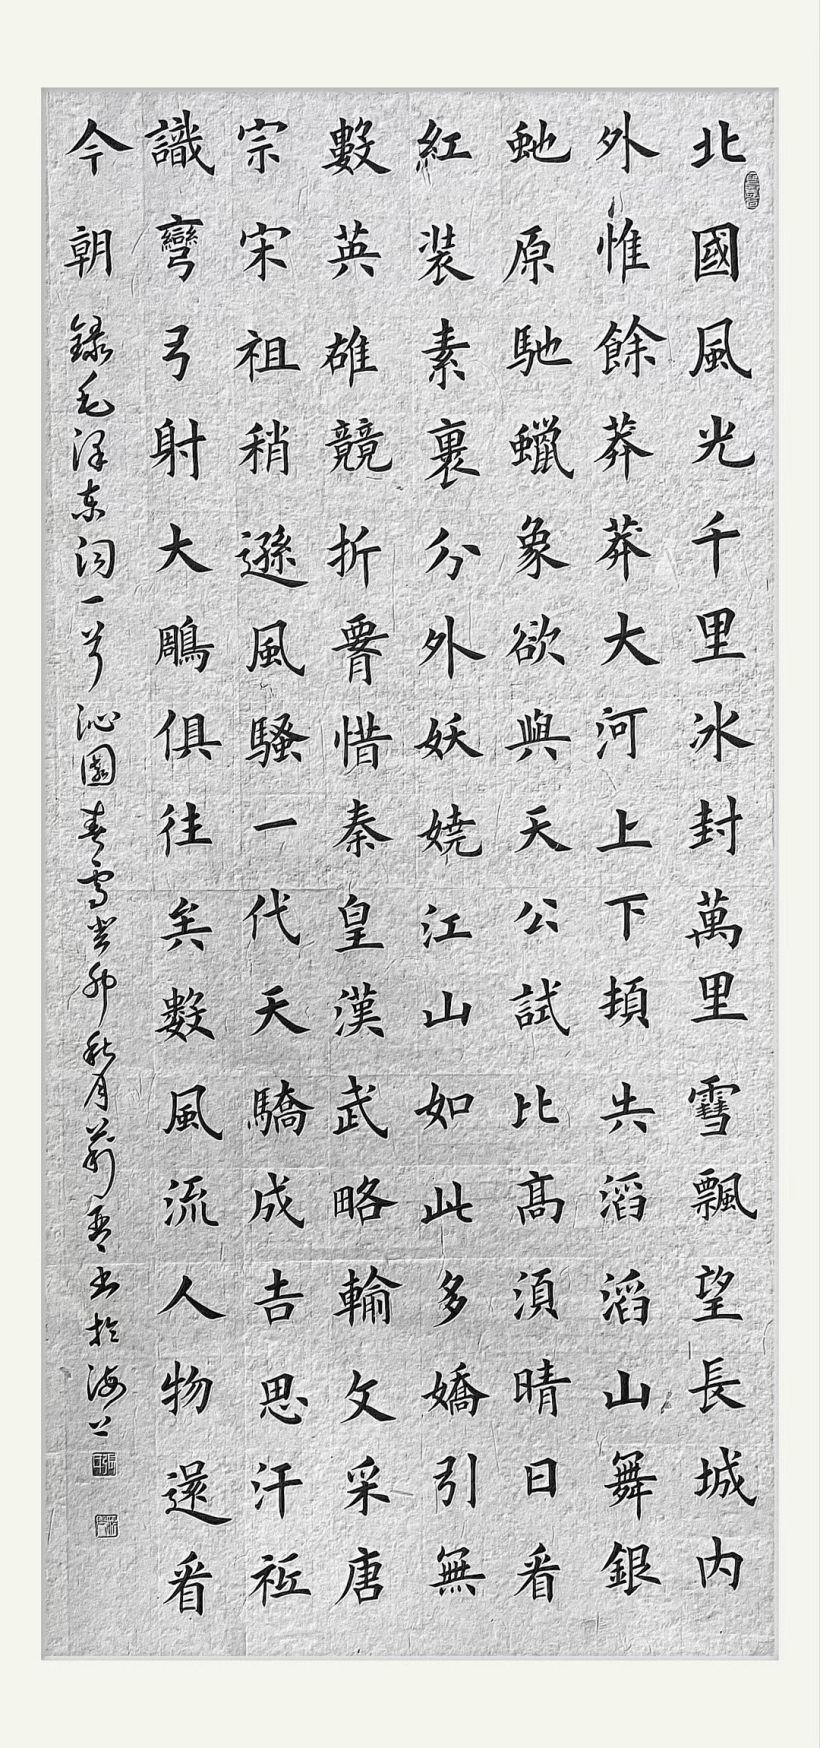 北國風光千里冰封萬里雪飄望長城內
外惟餘莽莽大河上下頓失滔滔山舞銀
虵原馳蠟象欲與天公試比高須晴日看
紅裝素裹分外妖嬈江山如此多嬌引無
數英雄競折腰惜秦皇漢武略輸文采唐
宗宋祖稍遜風騷一代天驕成吉思汗衹
識彎弓射大鵰俱往矣數風流人物還看
今朝
錄毛澤東詞一首沁園春雪癸卯秋月 書於海上